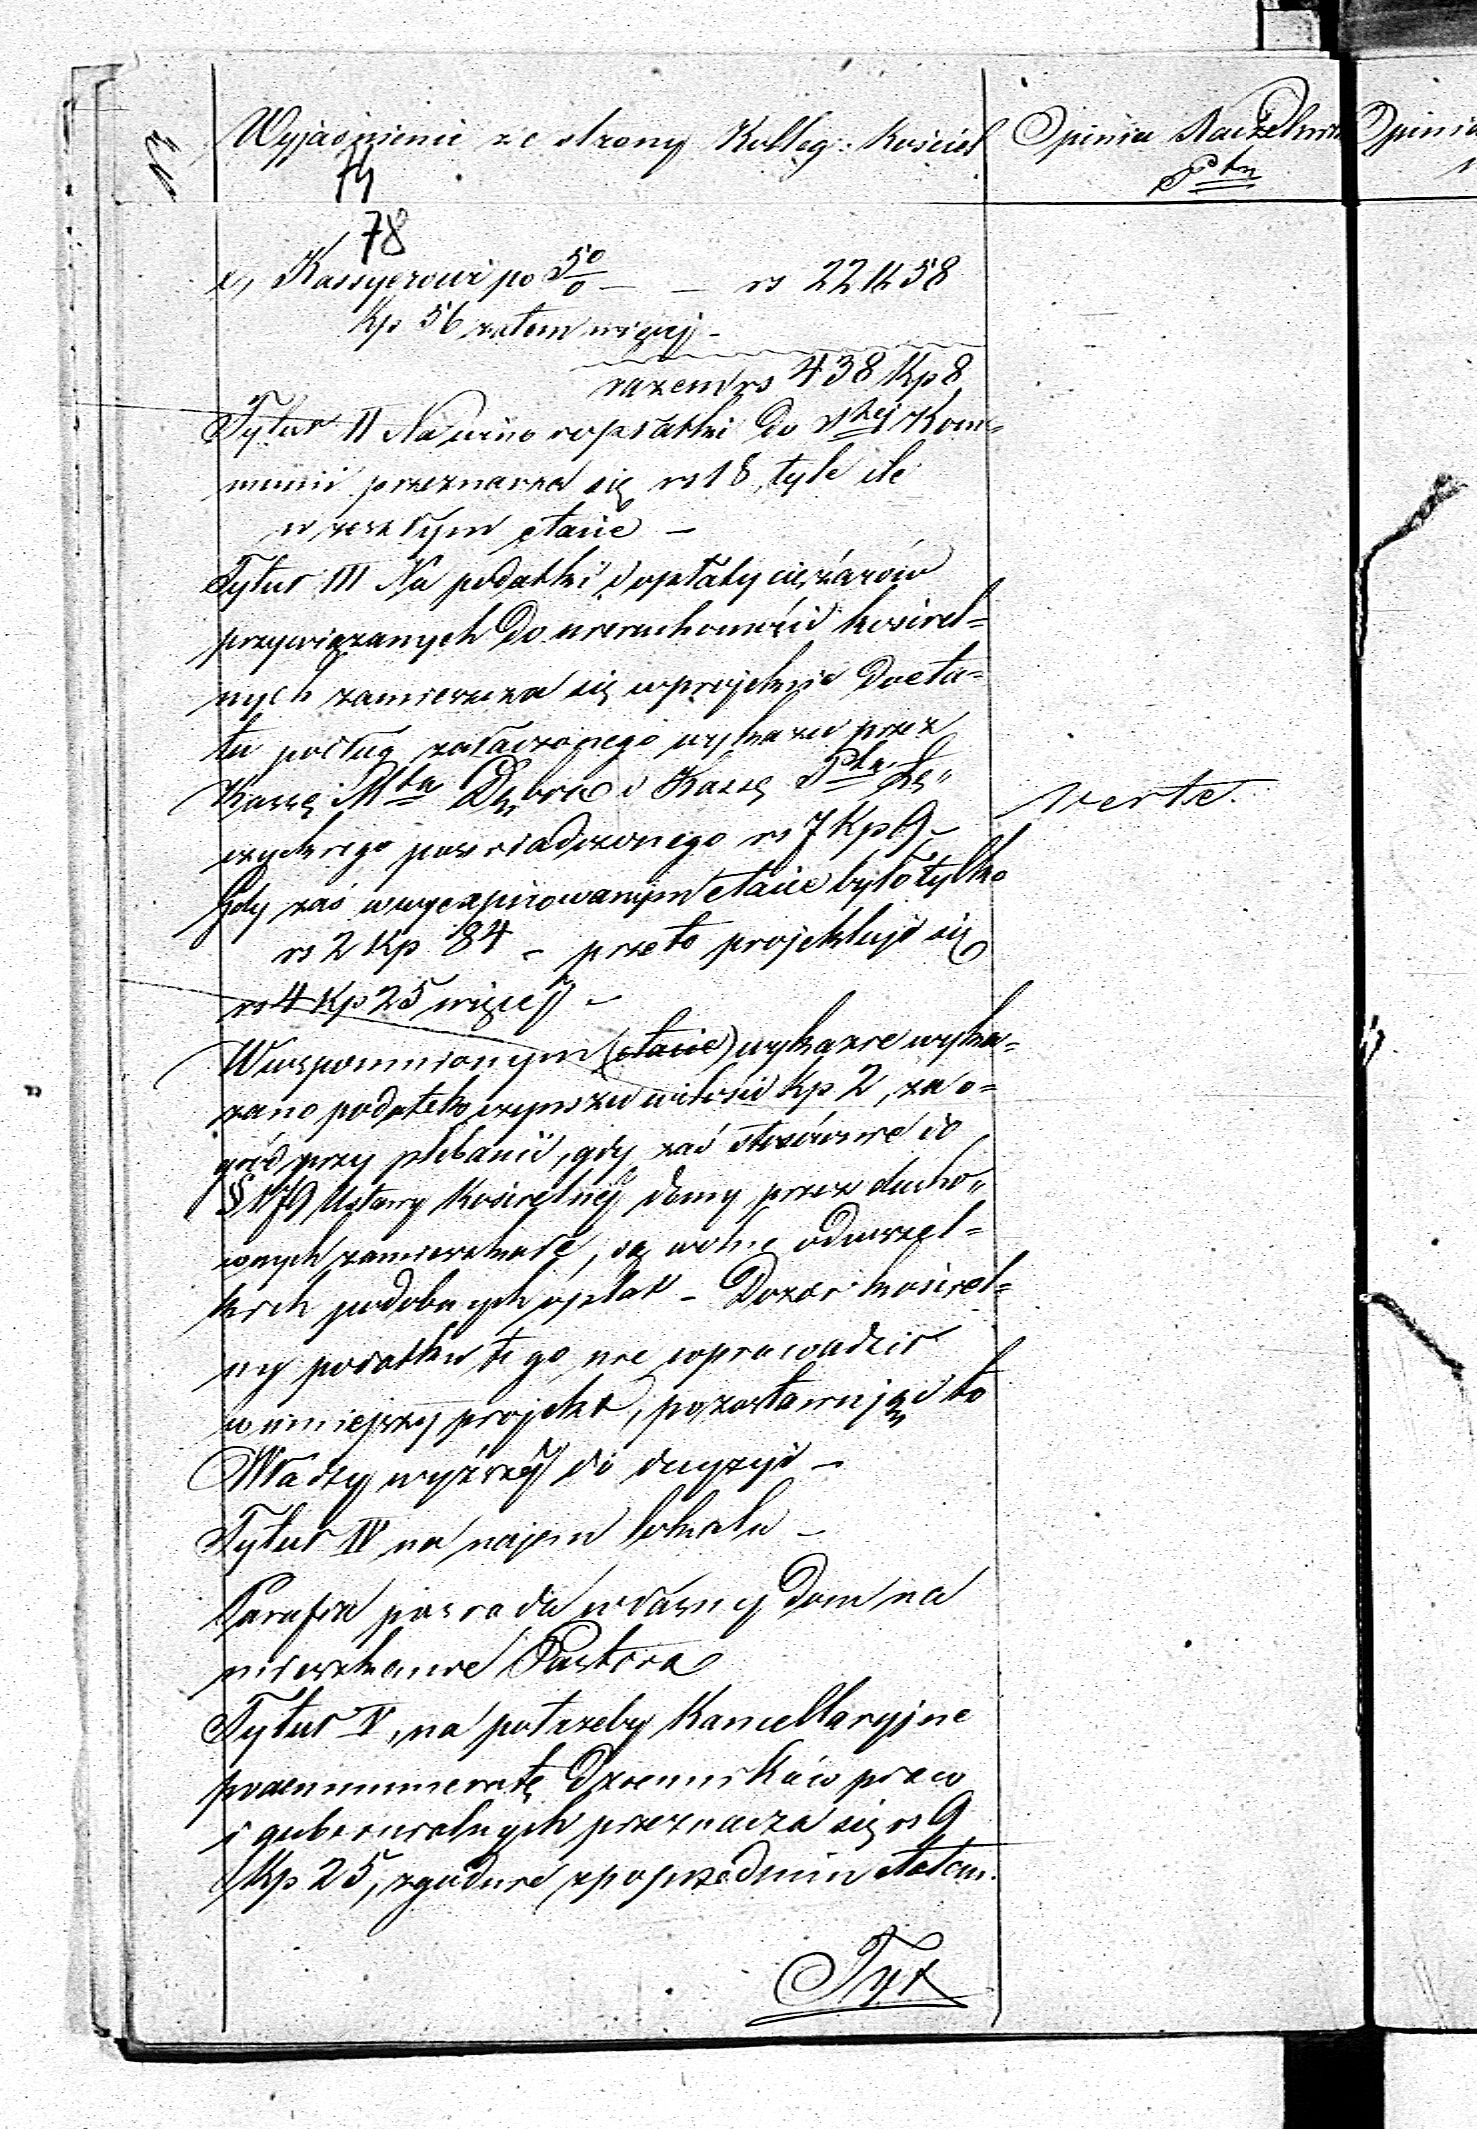 13
Wyjaśnienie ze strony Kolleg: Kościel
Opinia Naczelnika
Ptu
Opinia
78
e, Kassyerowi po 5% — — rs 22 k 58
kp 56 zatem więcej —
razem rs 438 kp 8
Tytuł II Na wino i opłatki do Stej Kom=
munii przeznacza się rs 18, tyle ile
w zeszłym etacie —
Tytuł III Na podatki i opłaty ciężarów
przywiązanych do nieruchomości kościel=
nych zamieszcza się w projekcie do eta=
tu podług załączonego wykazu przez
Kassę Mta Dąbie i Kassę Ptu Łę„
czyckiego poświadczonego rs 7 kp 9 —
Gdy zaś w wyexpirowanym etacie było tylko
rs 2 kp 84 — przeto projektuje się
rs 4 kp 25 więcej —
W wspomnionym (etacie) wykazie wyka=
zano podatek czynszu w ilości kp 2, za o=
gród przy plebanii, gdy zaś stosownie do
§ 179 Ustawy Kościelnéj domy przez ducho„
wnych zamieszkałe, są wolne od wszel=
kich podobnych opłat — Dozór kościel=
ny podatku tego nie wprowadził
w niniejszy projekt, pozostawując to
Władzy wyższéj do decyzyi —
Tytuł IV na najem lokalu —
Parafia posiada własny dom na
mieszkanie Pastora
Tytuł V, na potrzeby Kancellaryjne
prenumeratę Dzienników praw
i gubernialnych przeznacza się rs 9
kp 25, zgodnie z poprzednim etatem.
verte.
Tyt